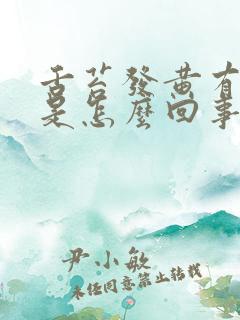 舌苔發黄有
是怎麼回事
尹小敏
未经同意禁止转载